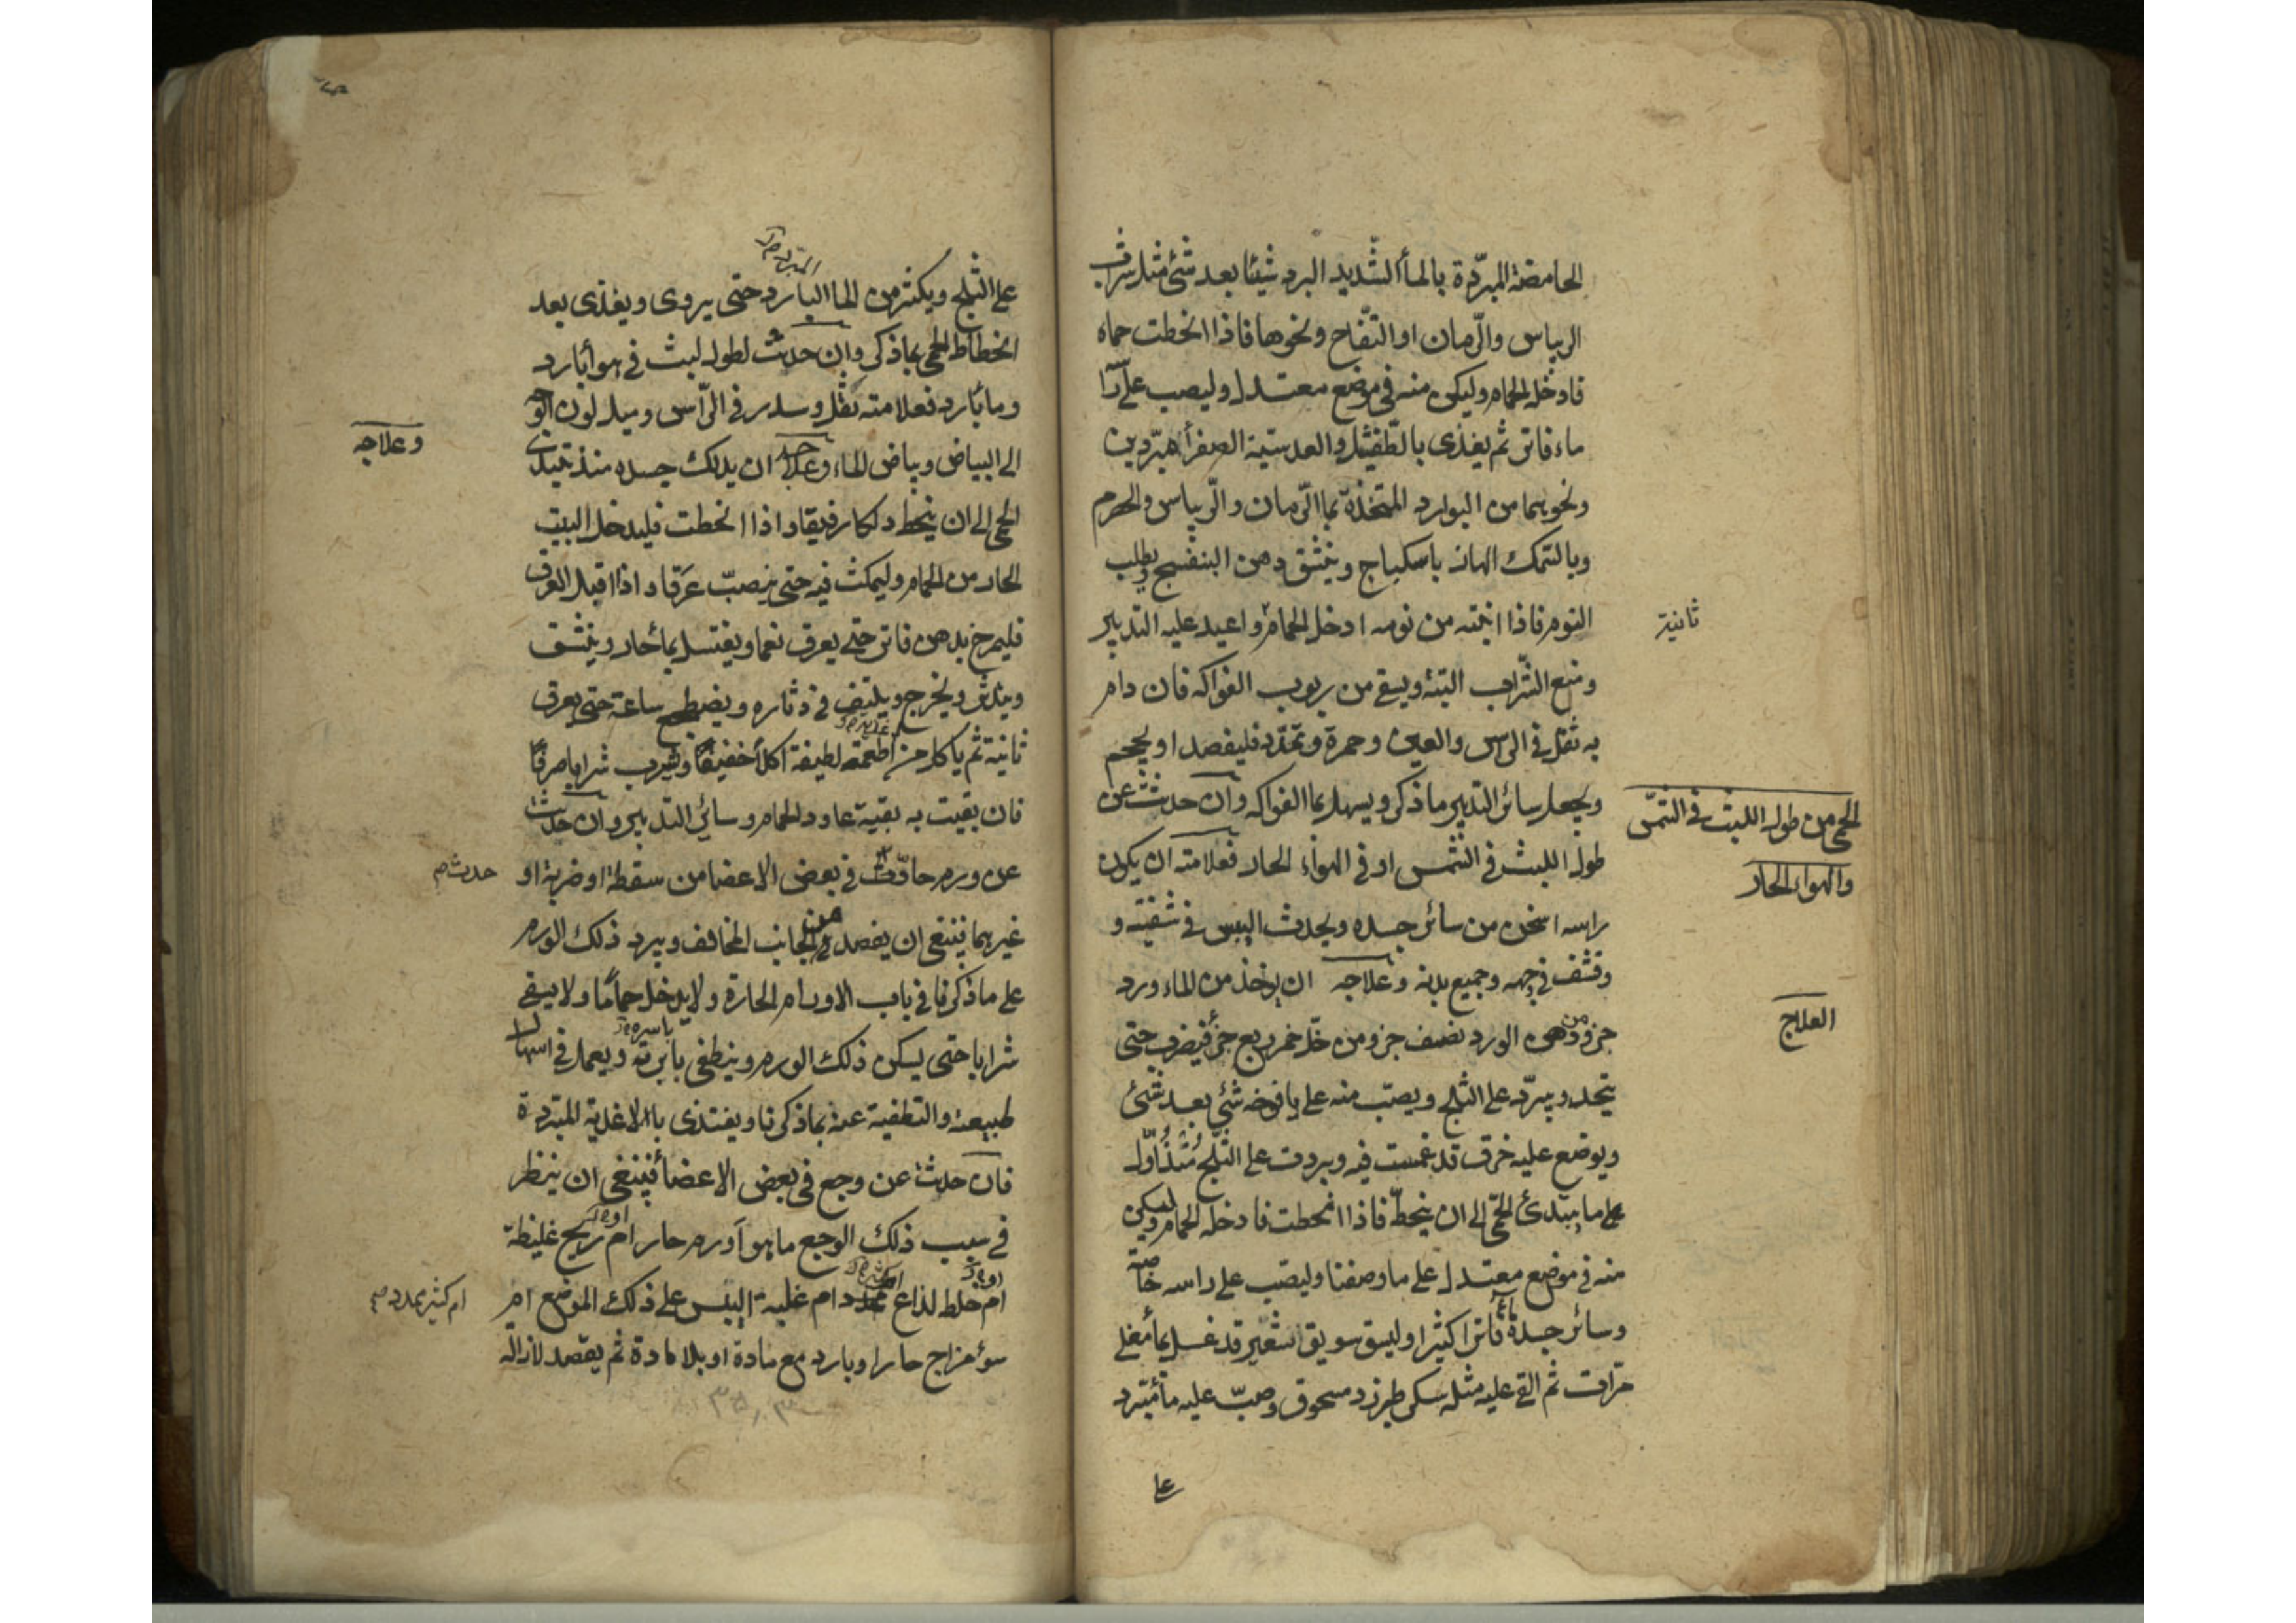 الحامضة المبرّدة بالماأ الشّديد البرد شيئا بعد شئ مثل شراب
الريباس والرّمان او التفّاح ونحوها فاذا انحطت حماه
فادخله الحمام وليكن منه في موضع معتدل وليصب عليه
ماء فاتر ثم يغذى بالطّفشيل والعدسيّة الصفرأ مبرّدين
ونحوهما من البوارد المتخذة بماالرّمان والرّيباس والحصرم
وبالسّمك الهازبا سكباج وينشق دهن البنفسج ويطلب
النوم فاذا انتبه من نومه ادخل الحمام واعيد عليه التدبير
ثانية
ومنع الشّراب البتة ويسقى من ربوب الفواكه فان دام
به ثقل في الراس والعين وحمرة وتمدّد فليفصد او يحجم
ويجعل سائر التدبير ما ذكر ويسهل بماالفواكه وان حدثت عن
الحمى من طول اللبث في الشّمس
والهواء الحار
طول اللبث في الشمس او في الهواء الحار فعلامته ان يكون
راسه اسخن من سائر جسده ويحدث اليبس في شفتيه و
وقشف في وجهه وجميع بدنه وعلاجه ان يوخذ من الماء ورد
العلاج
جزو ومن دهن الورد نصف جزو ومن خلّ خمر ربع جزأ فيضرب حتى
يتحد ويبرّد على الثلج ويصبّ منه على يافوخه شئ بعد شئ
ويوضع عليه خرق قد غمست فيه وبردت على الثلج منذ اوّل
ما يبتدئ الحمّى الى ان ينحطّ فاذا انحطت فادخله الحمام وليكن
منه في موضع معتدل على ما وصفنا وليصبّ على راسه خاصة
وسائر جسده ماء فاترا كثيرا وليسق سويق الشعير قد غسل بماأ مغلى
مرّات ثم القى عليه مثله سكر طبرزد مسحوق وصبّ عليه ماأ مبرّد
على
على الثلج ويكثر من الماالبارد حتى يروى ويغذى بعد
انحطاط الحمى بماذكر وان حدثت لطول لبث في هوأ بارد
وماء بارد فعلامته ثقل وسدر في الرّأس وميل لون الوجه
الى البياض وبياض الماء وعلاجه ان يدلك جسده منذ تبتدى
وعلاجه
الحمى الى ان ينحط دلكا رفيقا واذا انحطت فليدخل البيت
الحار من الحمام وليمكث فيه حتى ينصبّ عَرَقا واذا اقبل العرق
فليمرخ بدهن فاتر حتى يعرق نعما ويغتسل بماأ حار وينشف
ويخرج ويلتف في دثاره ويضطجع ساعة حتى يعرق
ثانية ثم ياكل من اطعمة لطيفة اكلاً خفيفًا ويشرب شرابا صرفًا
فان بقيت به بقية عاود الحمام وسائر التدبير وان حدثت
عن ورم حادّث في بعض الاعضا من سقطة او ضربة او
حدث
غيرهما فينبغى ان يفصد من الجانب المخالف ويبرد ذلك الورم
على ما ذكرنا في باب الاورام الحارة ولا يدخل حمامًا ولا يسقى
شرابا حتى يسكن ذلك الورم وينطفى ويعمل في اسهال
طبيعته والتطفية عنه بما ذكرنا ويغتذى بالاغذية المبّردة
فان حدثت عن وجع في بعض الاعضأ فينبغى ان ينظر
في سبب ذلك الوجع ما هو أورم حار ام ريح غليظة
ام خلط لذاع ام غلبة اليبس على ذلك الموضع ام
ام كثير يمدد
سوء مزاج حار او بارد مع مادة او بلا مادة ثم يقصد لازالة